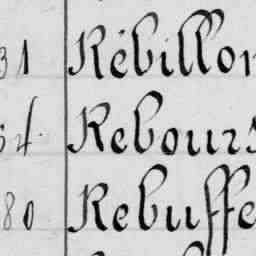 31 Rébillon
54. Rebours
80 Rebuffe